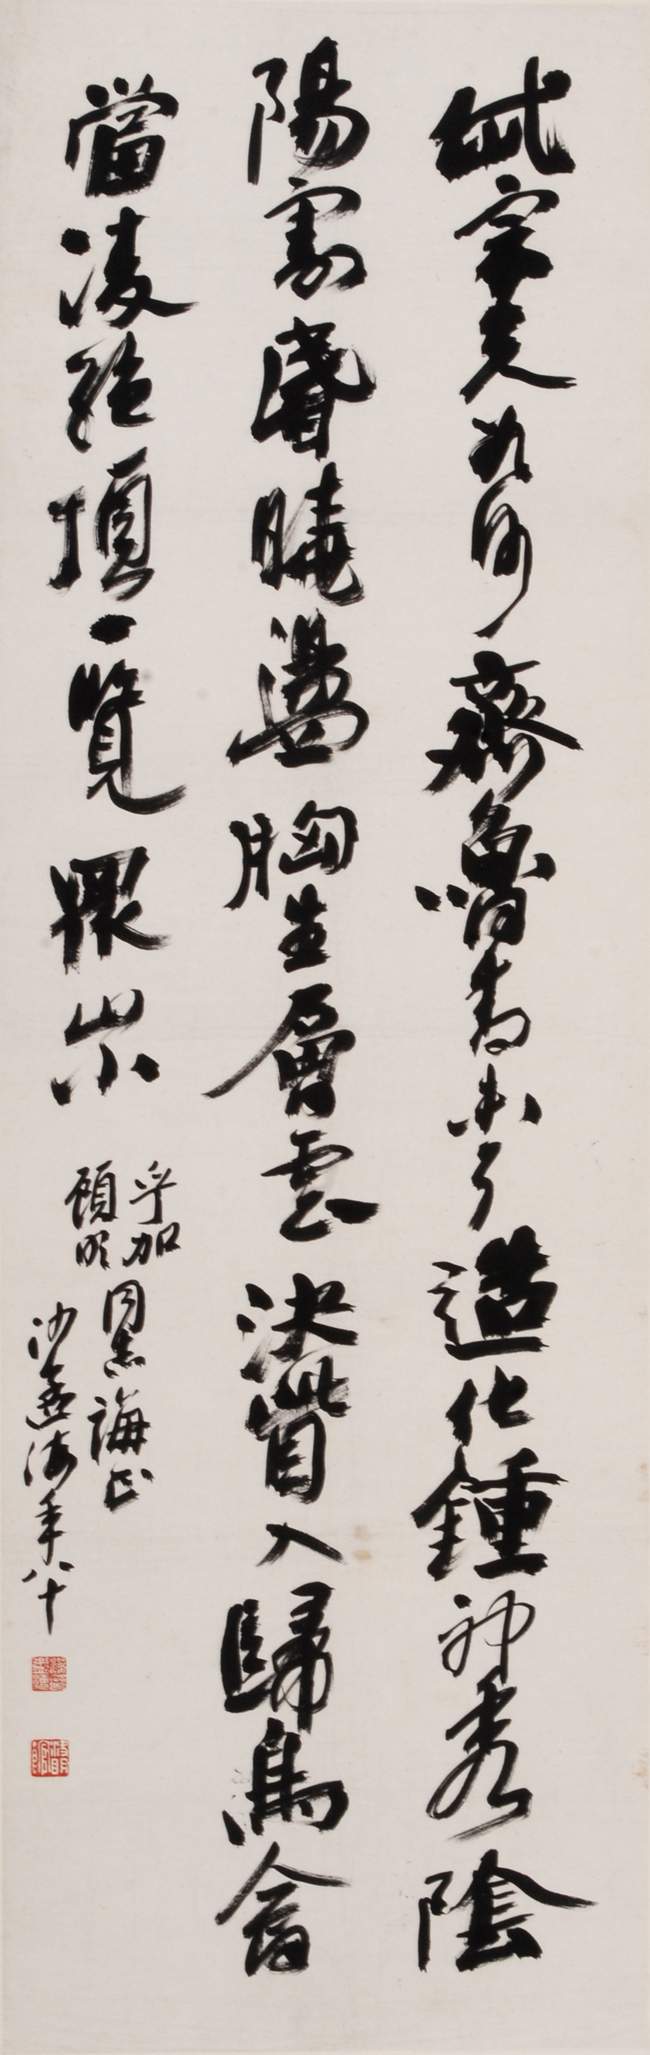 岱宗夫如何齊魯青未了造化鍾神秀陰
陽割昏曉盪胸生層雲決眥入歸鳥會
當凌絕頂一覽眾山小
乎加
顧明
同志誨正
沙孟海年八十